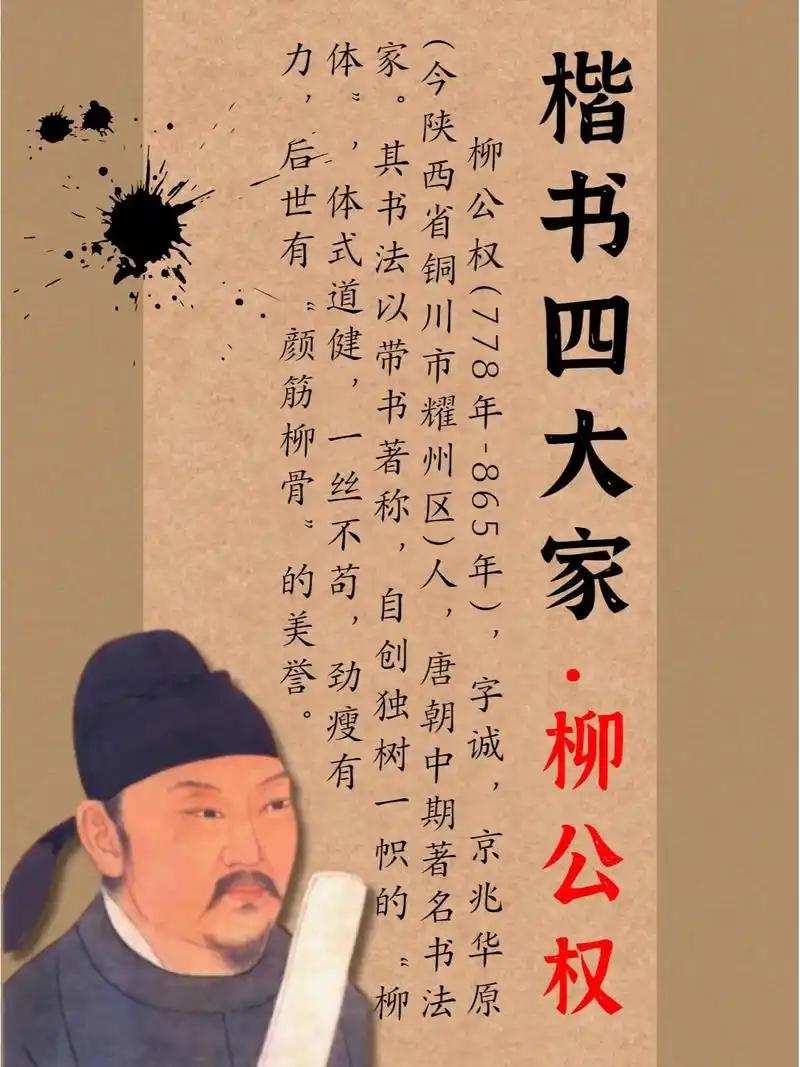 楷书四大家·柳公权
柳公权(778年-865年)，字诚，京兆华原
(今陕西省铜川市耀州区)人，唐朝中期著名书法
家。其书法以带书著称，自创独树一帜的“柳
体”，体式道健，一丝不苟，劲瘦有
力，后世有“颜筋柳骨”的美誉。